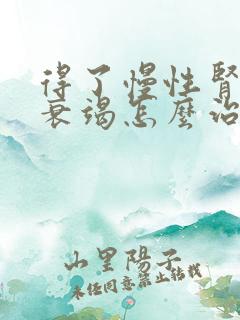 得了慢性腎
衰竭怎麼治
山里陽子
未经同意禁止转载